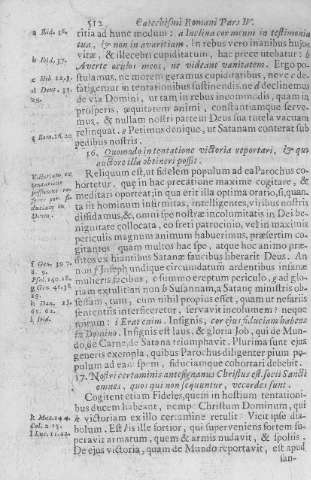 512 Catechismi Romani Pars IV.
a Ibid. 36.
titia ad hunc modum: a Inclina cor meum in testimonia
tua, & non in avaritiam. In rebus vero inanibus hujus
b Ibid. 37.
vitæ, & illecebri cupiditatum, hac prece utebatur: b
Averte oculos meos, ne videant vanitatem. Ergo po-
stulamus, ne morem geramus cupiditatibus, neve de-
fatigemur in tentationibus sustinendis, ne d declinemus
de via Domini, ut tam in rebus incommodis, quam in
prosperis, æquitatem animi, constantiamque serve-
mus, & nullam nostri partem Deus sua tutela vacuam
relinquat. e Petimus denique, ut Satanam conterat sub
e Rom. 16. 20.
pedibus nostris.
16. Quomodo in tentatione victoria reportari, & quo
auctore illa obtineri possit.
Reliquum est, ut fidelem populum ad ea Parochus co-
hortetur, quæ in hac precatione maxime cogitare, &
meditari oporteat, in qua erit illa optima oratio, si, quan-
ta sit hominum infirmitas, intelligentes, viribus nostris
diffidamus, &, omni spe nostræ incolumitatis in Dei be-
nignitate collocata, eo freti patrocinio, vel in maximis
periculis magnum animum habuerimus, præsertim co-
gitantes quam multos hac spe, atque hoc animo præ-
ditos ex hiantibus Satanæ faucibus liberarit Deus. An
non f Joseph undique circumdatum ardentibus insanæ
mulieris facibus, e summo ereptum periculo, g ad glo-
riam extulit? an non h Susannam, a Satanæ ministris ob-
sessam, cum, cum nihil propius esset, quam ut nefariis
sententiis interficeretur, servavit incolumem? neque
mirum: i Erat enim. Insignis, cor ejus fiduciam habens
i Ibid.
in Domino. Insignis est laus, & gloria Job, qui de Mun-
do, de Carne, de Satana triumphavit. Plurima sunt ejus
generis exempla, quibus Parochus diligenter pium po-
pulum ad eam spem, fiduciamque cohortari debebit.
17. Nostri certaminis antesignanus Christus est, socii Sancti
omnes, quos qui non sequuntur, vecordes sunt.
Cogitent etiam Fideles, quem in hostium tentationi-
bus ducem habeant, nempe Christum Dominum, qui
victoriam ex illo certamine retulit. Vicit ipse dia-
bolum. Est l is ille fortior, qui superveniens fortem su-
peravit armatum, quem & armis nudavit, & spoliis.
De ejus victoria, quam de Mundo reportavit, est apud